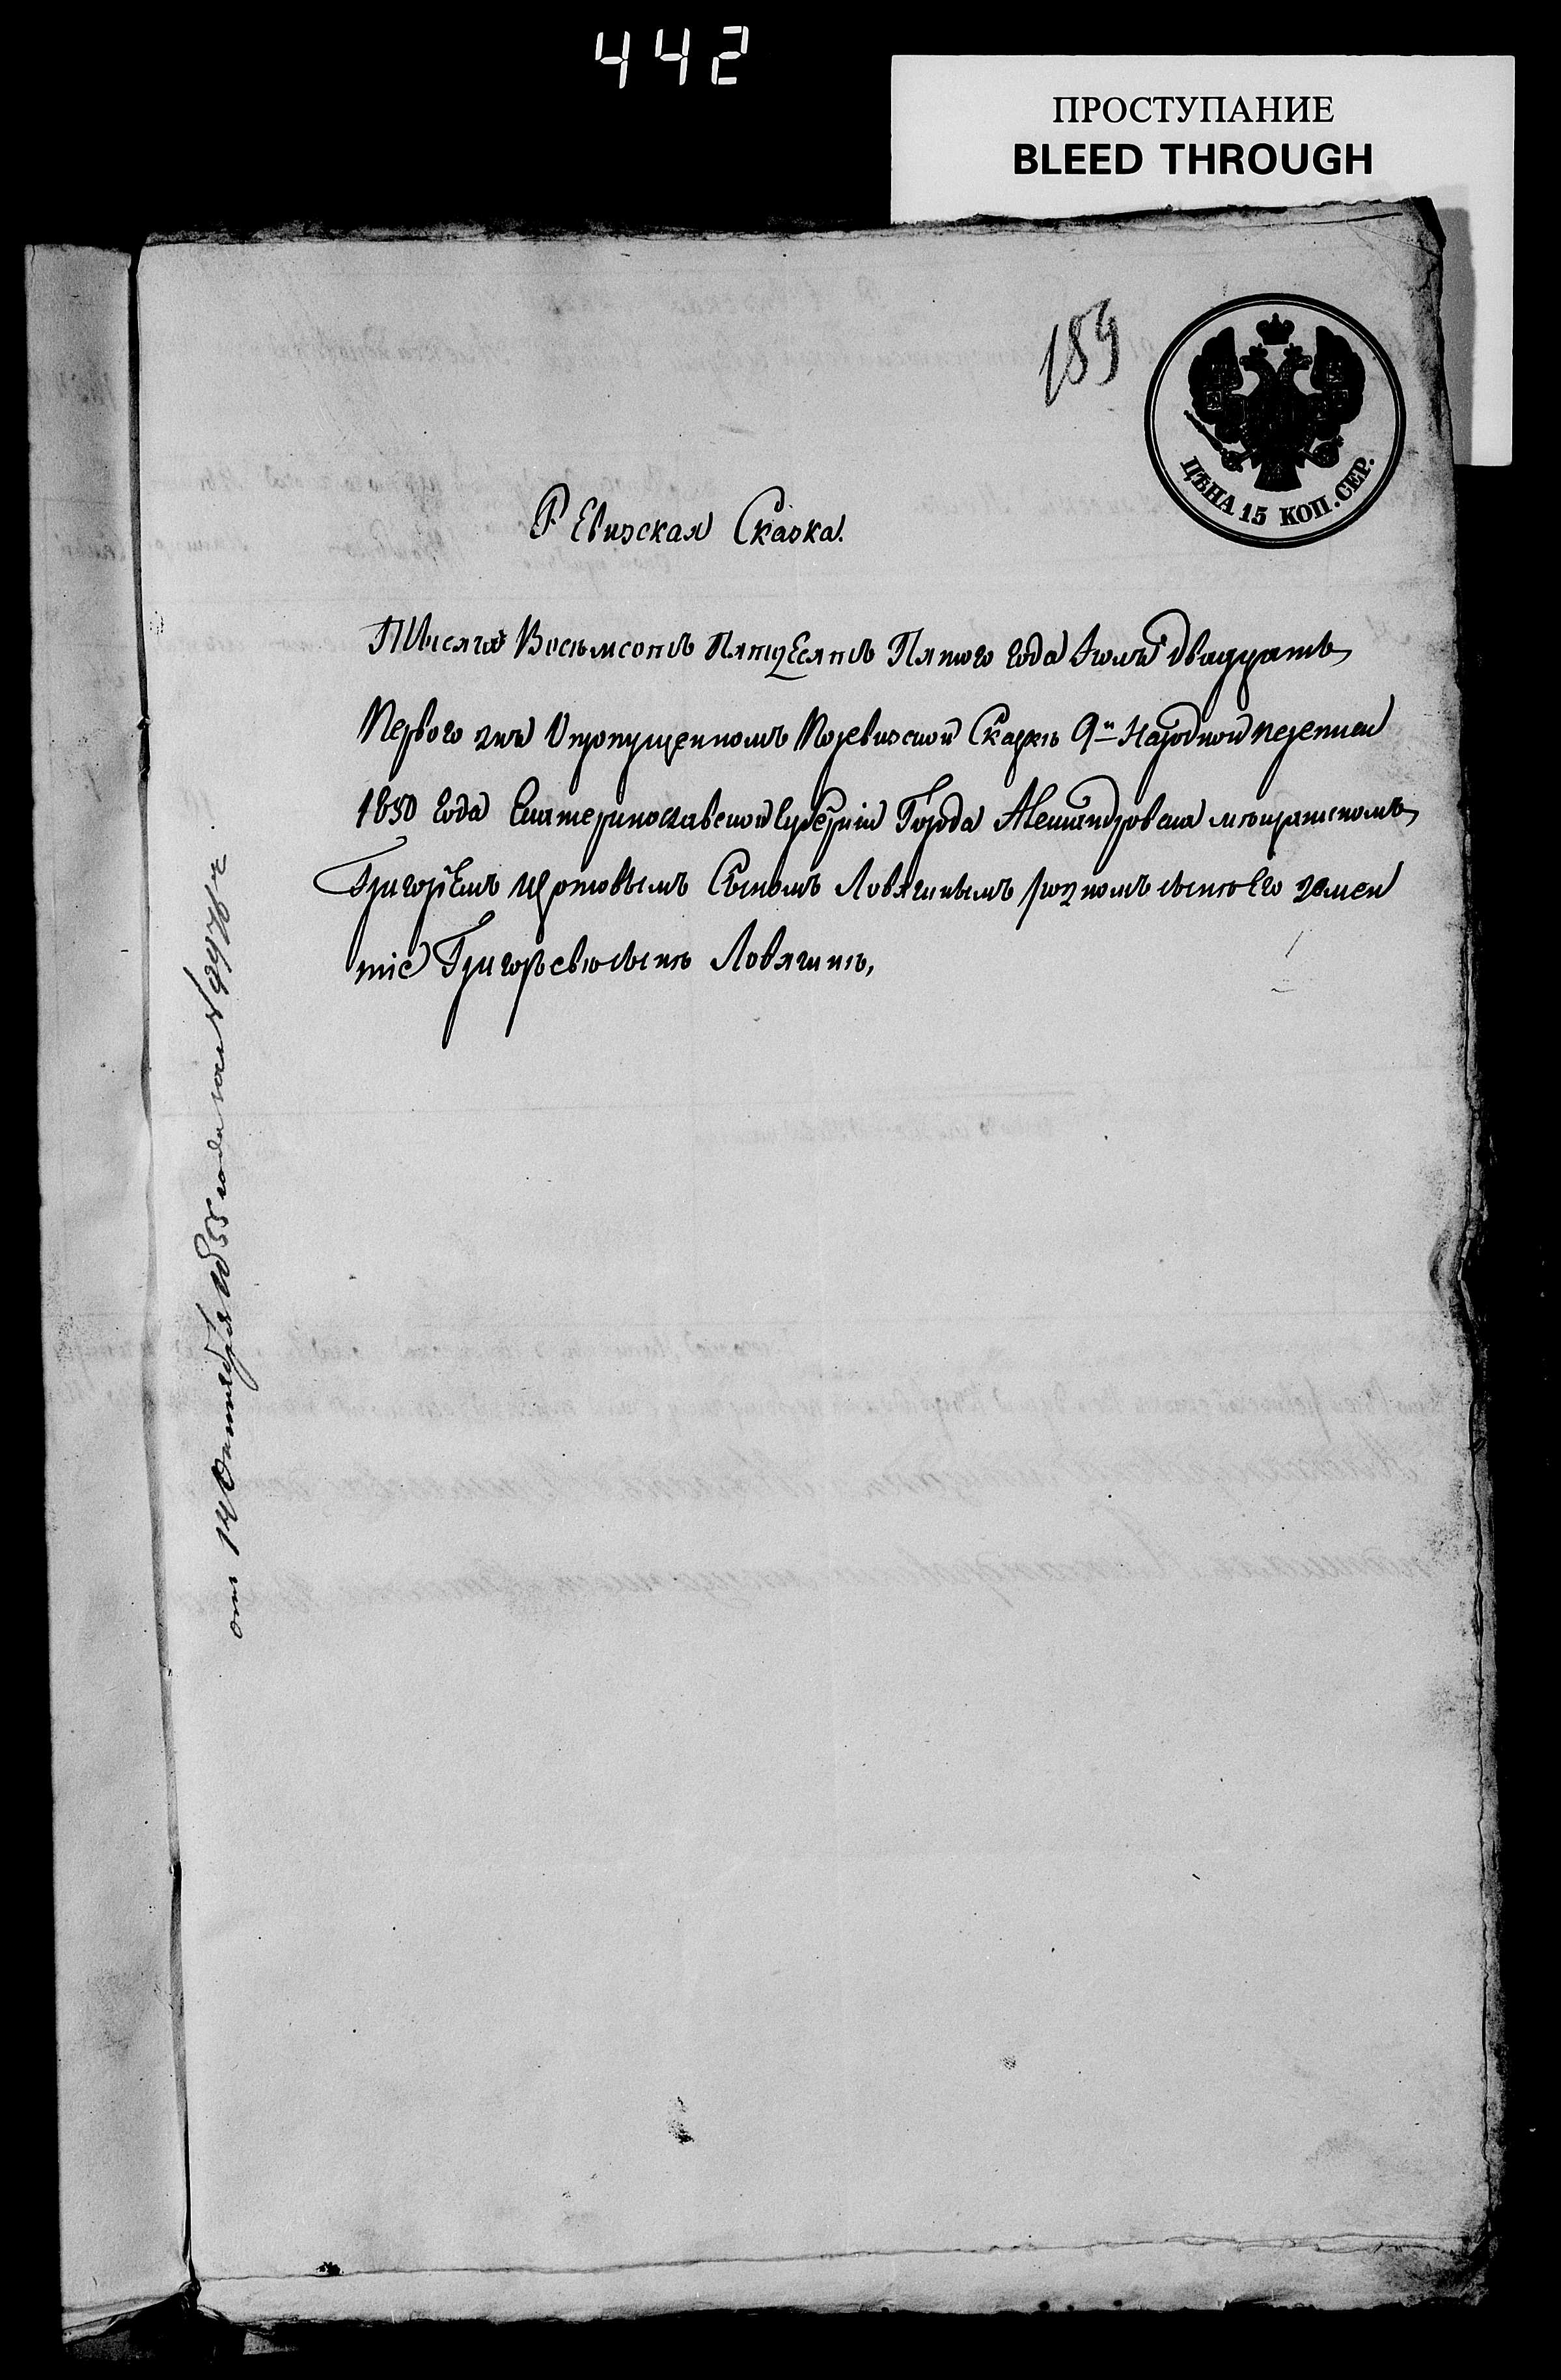 442
ПРОСТУПАНИЕ
BLEED THROUGH
189
ЦѢНА 15 КОП. СЕР.
Ревизская Сказка.
Тысяча Восемсотъ Пятдесятъ Пятого года Июля двадцать
Первого дня Опропущенномъ Поревизской Сказке 9й Народной переписи
1850 года Екатеринославской Губернiи Города Александровска мещанскомъ
Григорiемъ Сыномъ Ловягинымъ родномъ сыне Его
Григорьевесыне Ловягине,
отъ 14 Октября 1855 года за № 9976